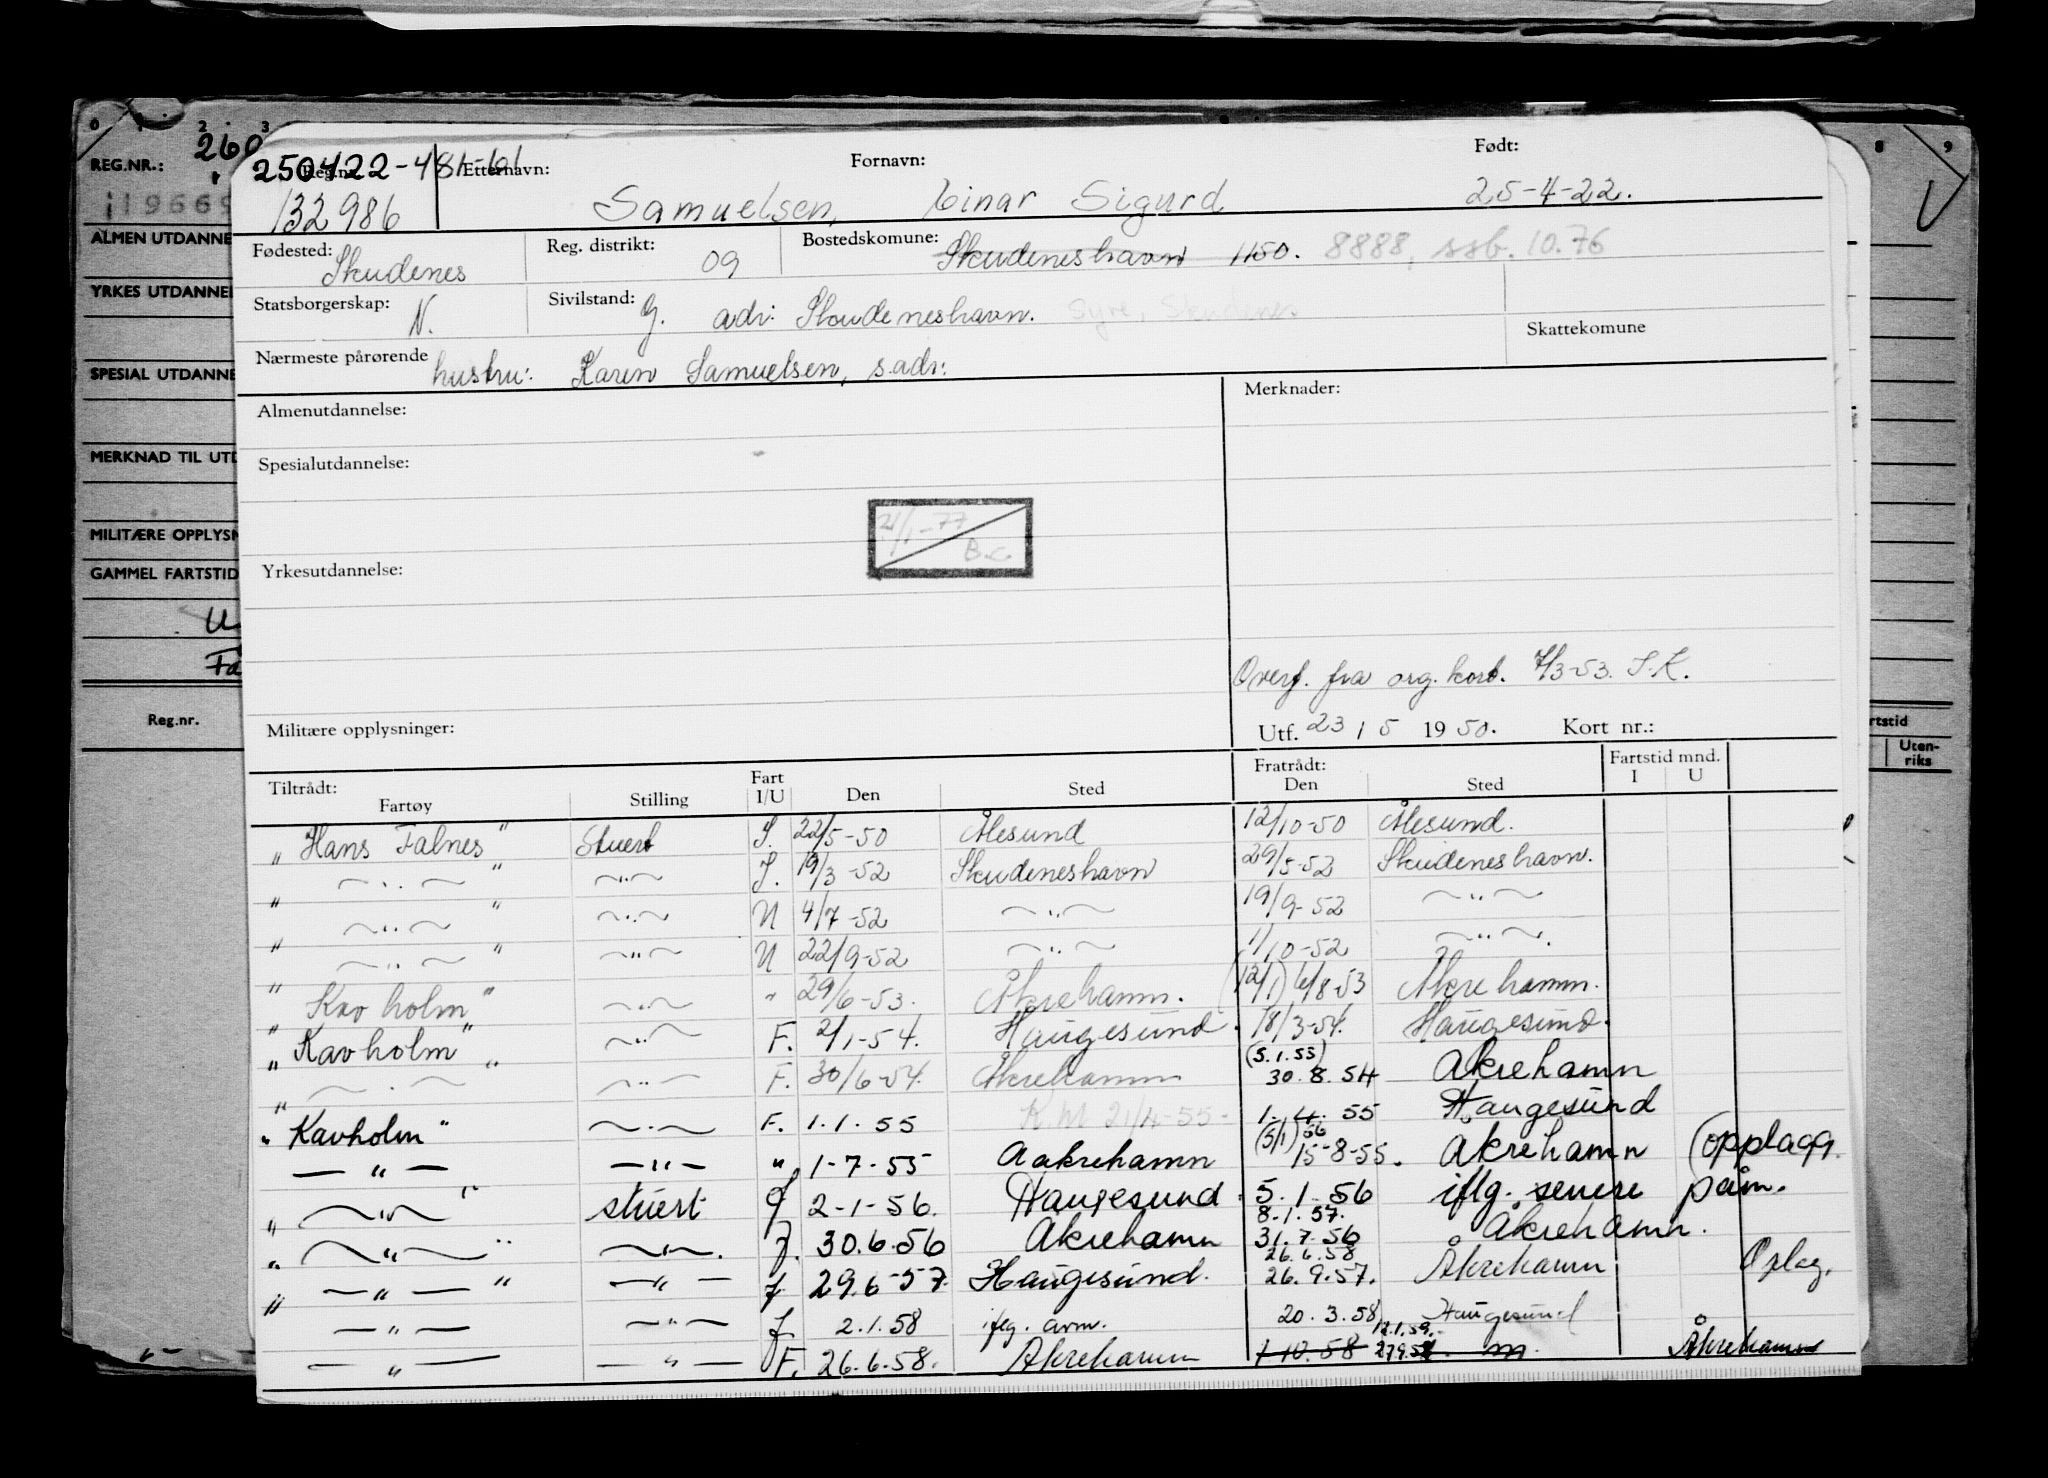 0 1 2 3
8 9
REG.NR.: 260
119669
ALMEN UTDANNE
YRKES UTDANNE
SPESIAL UTDANNE
MERKNAD TIL UTD
MILITÆRE OPPLYSN
GAMMEL FARTSTID
U
Fa
Reg.nr.
rtstid
Uten-
riks
250422-481-61
Reg.nr. Etternavn: Fornavn: Født:
132986 Samuelsen, Einar Sigurd 25-4-22.
Fødested: Reg. distrikt: Bostedskomune:
Skudenes 09 Skudeneshavn 1150. 8888, ssb. 10.76
Statsborgerskap: N. Sivilstand: G. adr: Skudeneshavn. Syre, Skudenes.
Skattekomune
Nærmeste pårørende hustru: Karen Samuelsen, s.adr.
Almenutdannelse: Merknader:
Spesialutdannelse:
21/1-77
B.c.
Yrkesutdannelse:
Overf. fra org. kort. 7/3-53. S.K.
Militære opplysninger: Utf. 23 / 5 1950. Kort nr.:
Tiltrådt: Fart Fratrådt: Fartstid mnd.
Fartøy Stilling I/U Den Sted Den Sted I U
"Hans Falnes" Stuert I. 22/5-50 Ålesund 12/10-50 Ålesund.
" —"— " —"— I. 19/3-52 Skudeneshavn 29/5-52 Skudeneshavn.
" —"— " —"— U 4/7-52 —"— 19/9-52 —"—
" —"— " —"— U 22/9-52 —"— 1/10-52 —"—.
" Kavholm" —"— " 29/6-53. Åkrehamn. (12/1) 6/8-53 Åkrehamn.
" Kavholm" —"— F. 2/1-54. Haugesund. 18/3-54. Haugesund.
" —"— " —"— F. 30/6-54. Åkrehamn (5.1.55) 30.8.54 Akrehamn
" Kavholm" —"— F. 1.1.55 K.M 21/4-55- 1.4.55 Haugesund
—"— —"— " 1-7-55 Aakrehamn (5/1) 56 15-8-55. Akrehamn (opplagg.
" —"— " stuert f 2-1-56. Haugesund. 5.1.56 iflg. senere påm.
" —"— " —"—. f. 30.6.56 Akrehamn 8.1.57. 31.7.56 Åkrehamn.
" —"— " —"— f 29.6-57 Haugesund. 26.6.58 26.9.57. Åkrehamn Oplag.
—"— —"— f. 2.1.58 ifg. avm. 20.3.58 Haugesund
—"— —"— F. 26.6.58. Åkrehamn 1 10.58 12.1.59. 27.9.58. m. Åkrehamn